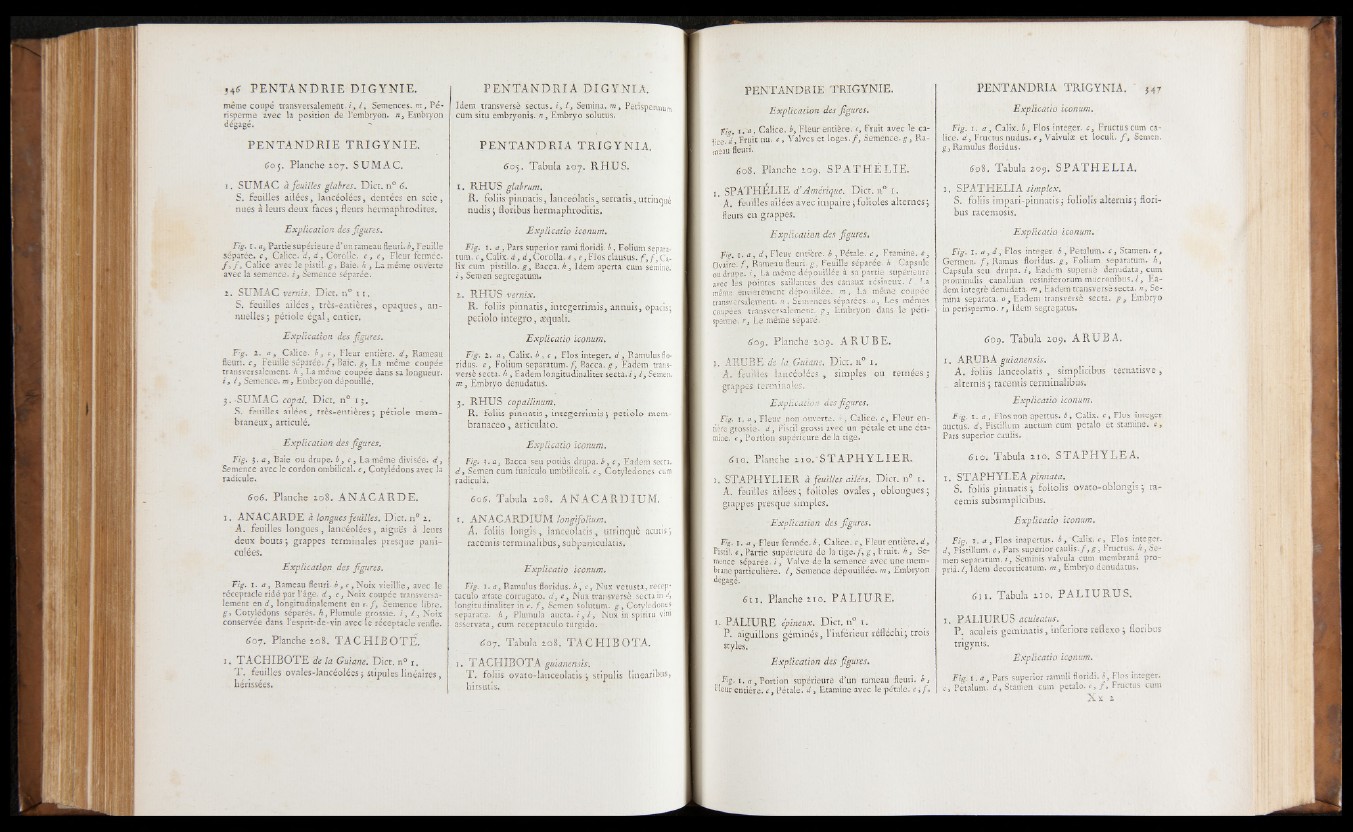 346 PENTANDRIE DIGYNIE.
même coupé transversalement i, l, Semences. m, Pé-
risperme avec la position de l'embryon. n, Embryon
dégagé.
PENTANDRIE TRIGYNIE.
605. Planche 207. SUMAC.
1. SUMAC à feuilles glabres. Dict. n° 6.
S. feuilles ailées, lancéolées, dentées en scie,
nues à leurs deux faces ; fleurs hermaphrodites.
Explication des figures.
Fig. 1. a, Partie supérieure d'un rameau fleuri. b, Feuille
séparée. c, Calice. d, d, Corolle. e, e, Fleur fermée.
f, f, Calice avec le pistil. g, Baie. h, La même ouverte
avec la semence. i, Semence séparée.
2. SUMAC vernis. Dict. n° 11.
S. feuilles ailées, très-entières, opaques, an-
nuelles ; pétiole égal, entier.
Explication des figures.
Fig. 2. a, Calice. b, c, Fleur entière. d, Rameau
fleuri. e, Feuille séparée. f, Baie. g, La même coupée
transversalement. h, La même coupée dans sa longueur.
i, l, Semence. m, Embryon dépouillé.
3. SUMAC copal. Dict. n° 13.
S. feuilles ailées, très-entières ; pétiole mem-
braneux, articulé.
Explication des figures.
Fig. 3. a, Baie ou drupe. b, c, La même divisée. d,
Semence avec le cordon ombilical. e, Cotylédons avec la
radicule.
606. Planche 208. ANACARDE.
1. ANACARDE à longues feuilles. Dict. n° 2.
A. feuilles longues, lancéolées, aiguës à leurs
deux bouts ; grappes terminales presque pani-
culées.
Explication des figures.
Fig. 1. a, Rameau fleuri. b, c, Noix vieillie, avec le
réceptacle ridé par l'âge. d, e, Noix coupée transversa-
lement en d, longitudinalement en e. f, Semence libre.
g, Cotylédons séparés. h, Plumule grossie. i, l, Noix
conservée dans l'esprit-de-vin avec le réceptacle renflé.
607. Planche 208. TACHIBOTE.
1. TACHIBOTE de la Guiane. Dict. n° 1.
T. feuilles ovales-lancéolées ; stipules linéaires,
hérissées.
PENTANDRIA DIGYNIA.
Idem transversè sectus. i, l, Semina. m, Perispermum
cum situ embryonis. n, Embryo solutus.
PENTANDRIA TRIGYNIA.
605. Tabula 207. RHUS.
1. RHUS glabrum.
R. foliis pinnatis, lanceolatis, serratis, utrinquè
nudis ; floribus hermaphroditis.
Explicatio iconum.
Fig. 1. a, Pars superior rami floridi. b, Folium separa-
tum. c, Calix. d, d, Corolla. e, e, Flos clausus. f, f, Ca-
lix cum pistillo. g, Bacca. h, Idem aperta cum semine.
i, Semen segregatum.
2. RHUS vernix.
R. foliis pinnatis, integerrimis, annuis, opacis;
petiolo integro, æquali.
Explicatio iconum.
Fig. 2. a, Calix. b, c, Flos integer. d, Ramulus flo-
ridus. e, Folium separatum. f, Bacca. g, Eadem trans-
versè secta. h, Eadem longitudinaliter secta. i, l, Semen.
m, Embryo denudatus.
3. RHUS copallinum.
R. foliis pinnatis, integerrimis ; petiolo mem-
branaceo, articulato.
Explicatio iconum.
Fig. 3. a, Bacca seu potiùs drupa. b, c, Eadem secta.
d, Semen cum funiculo umbilicali. e, Cotyledones cum
radiculâ.
606. Tabula 208. ANACARDIUM.
1. ANACARDIUM longifolium.
A. foliis longis, lanceolatis, utrinquè acutis ;
racemis terminalibus, subpaniculatis.
Explicatio iconum.
Fig. 1. a, Ramulus floridus. b, c, Nux vetusta, recep-
taculo ætate corrugato. d, e, Nux transversè secta in d,
longitudinaliter in e. f, Semen solutum. g, Cotyledones
separatæ. h, Plumula aucta. i, l, Nux in spiritu vini
asservata, cum receptaculo turgido.
607. Tabula 208. TACHIBOTA.
1. TACHIBOTA guianensis.
T. foliis ovato-lanceolatis ; stipulis linearibus,
hirsutis.
PENTANDRIE TRIGYNIE.
Explication des figures.
Fig. 1. a, Calice. b, Fleur entière. c, Fruit avec le ca-
lice. d, Fruit nu. e, Valves et loges. f, Semence. g, Ra-
meau fleuri.
608. Planche 209. SPATHÉLIE.
1. SPATHÉLIE d'Amérique. Dict. n° 1.
A. feuilles ailées avec impaire ; folioles alternes ;
fleurs en grappes.
Explication des figures.
Fig. 1. a, d, Fleur entière. b, Pétale. c, Etamine. e,
Ovaire. f, Rameau fleuri. g, Feuille séparée. h, Capsule
ou drupe. i, La même dépouillée à sa partie supérieure
avec les pointes saillantes des canaux résineux. l, La
même entièrement dépouillée. m, La même coupée
transversalement. n, Semences séparées. o, Les mêmes
coupées transversalement. p, Embryon dans le péri-
sperme. r, Le même séparé.
609. Planche 209. ARUBE.
1. ARUBE de la Guiane. Dict. n° 1.
A. feuilles lancéolées, simples ou ternées ;
grappes terminales.
Explication des figures.
Fig. 1. a, Fleur non ouverte. b, Calice. c, Fleur en-
tière grossie. d, Pistil grossi avec un pétale et une éta-
mine. e, Portion supérieure de la tige.
610. Planche 210. STAPHYLIER.
1. STAPHYLIER à feuilles ailées. Dict. n° 1.
A. feuilles ailées ; folioles ovales, oblongues ;
grappes presque simples.
Explication des figures.
Fig. 1. a, Fleur fermée. b, Calice. c, Fleur entière. d,
Pistil. e, Partie supérieure de la tige. f, g, Fruit. h, Se-
mence séparée. i, Valve de la semence avec une mem-
brane particulière. l, Semence dépouillée. m, Embryon
dégagé.
611. Planche 210. PALIURE.
1. PALIURE épineux. Dict. n° 1.
P. aiguillons géminés, l'inférieur réfléchi ; trois
styles.
Explication des figures.
Fig. 1. a, Portion supérieure d'un rameau fleuri. b,
Fleur entière. c, Pétale. d, Etamine avec le pétale. e, f,
PENTANDRIA TRIGYNIA. 347
Explicatio iconum.
Fig. 1. a, Calix. b, Flos integer. c, Fructus cum ca-
lice. d, Fructus nudus. e, Valvulæ et loculi. f, Semen.
g, Ramulus floridus.
608. Tabula 209. SPATHELIA.
1. SPATHELIA simplex.
S. foliis impari-pinnatis ; foliolis alternis ; flori-
bus racemosis.
Explicatio iconum.
Fig. 1. a, d, Flos integer. b, Petalum. c, Stamen. e,
Germen. f, Ramus floridus. g, Folium separatum. h,
Capsula seu drupa. i, Eadem supernè denudata, cum
prominulis canalium resiniferorum mucronibus. l, Ea-
dem integrè denudata. m, Eadem transversè secta. n, Se-
mina separata. o, Eadem transversè secta. p, Embryo
in perispermo. r, Idem segregatus.
609. Tabula 209. ARUBA.
1. ARUBA guianensis.
A. foliis lanceolatis, simplicibus ternatisve,
alternis ; racemis terminalibus.
Explicatio iconum.
Fig. 1. a, Flos non apertus. b, Calix. c, Flos integer
auctus. d, Pistillum auctum cum petalo et stamine. e,
Pars superior caulis.
610. Tabula 210. STAPHYLEA.
1. STAPHYLEA pinnata.
S. foliis pinnatis ; foliolis ovato-oblongis ; ra-
cemis subsimplicibus.
Explicatio iconum.
Fig. 1. a, Flos inapertus. b, Calix. c, Flos integer.
d, Pistillum. e, Pars superior caulis. f, g, Fructus. h, Se-
men separatum. i, Seminis valvula cum membranâ pro-
priâ. l, Idem decorticatum. m, Embryo denudatus.
611. Tabula 210. PALIURUS.
1. PALIURUS aculeatus.
P. aculeis geminatis, inferiore reflexo ; floribus
trigynis.
Explicatio iconum.
Fig. 1. a, Pars superior ramuli floridi. b, Flos integer.
c, Petalum. d, Stamen cum petalo. e, f, Fructus cum
Xx 2